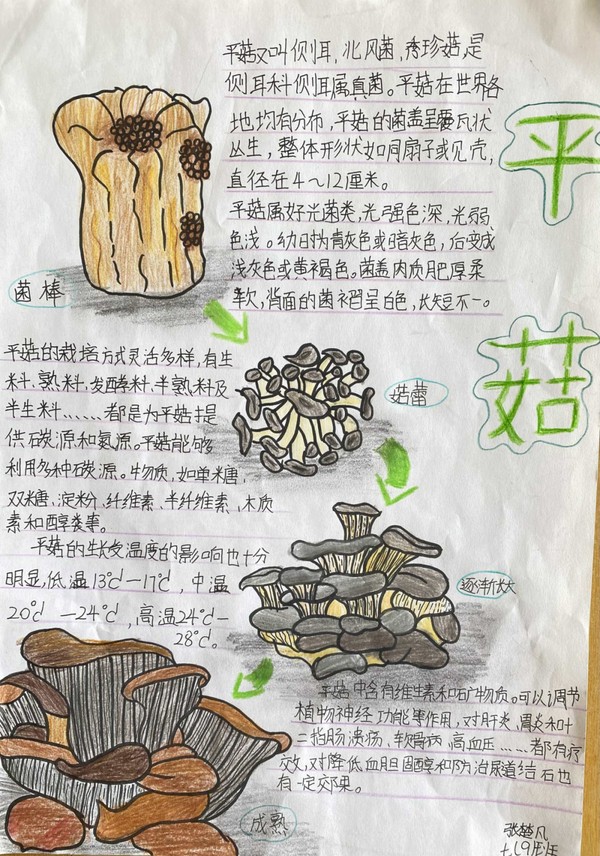 平菇
平菇又叫侧耳,北风菌,秀珍菇,是
侧耳科侧耳属真菌。平菇在世界各
地均有分布,平菇的菌盖呈覆瓦状
丛生,整体形状如同扇子或贝壳,
直径在4~12厘米。
平菇属好光菌类,光强色深,光弱
色浅。幼时为青灰色或暗灰色,后变成
浅灰色或黄褐色。菌盖肉质肥厚柔
软,背面的菌褶呈白色,长短不一。
菌棒
平菇的栽培方式灵活多样,有生
料、熟料、发酵料、半熟料及
半生料......都是为平菇提
供碳源和氮源。平菇能够
利用多种碳源。物质,如单米糖、
双糖、淀粉、纤维素、半纤维素、木质
素和醇类等。
菇蕾
平菇的生长受温度的影响也十分
明显,低温13℃—17℃,中温
20℃—24℃,高温24℃—
28℃。
逐渐长大
平菇中含有维生素和矿物质。可以调节
植物神经功能等作用,对肝炎、胃炎和叶
二指肠溃疡、软骨病、高血压......都有疗
效,对降低血胆固醇和防治尿道结石也
有一定效果。
成熟
张楚凡
9班